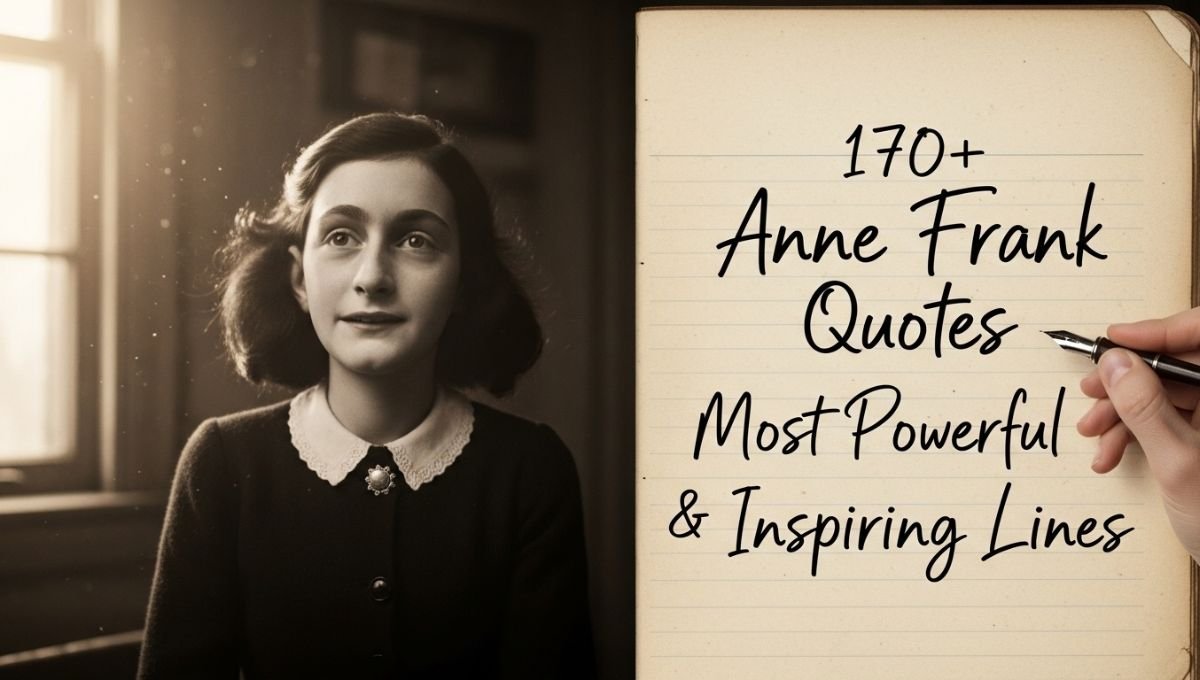 170+
Anne Frank
Quotes
Most Powerful
& Inspiring Lines